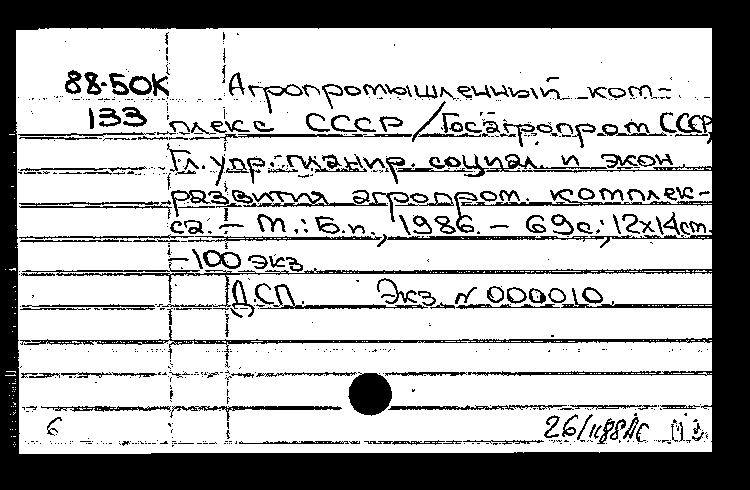 88-50К Агропромышленный ком-
133 плекс СССР / Госагропром СССР,
Гл. упр. планир. социал. и экон.
развития агропром. комплек-
са. – М.: Б.и., 1986. – 69с.; 12х14см.
– 100 экз.
ДСП. Экз. N 000010.
6